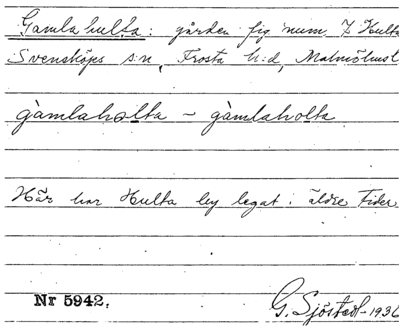 Gamla hulta: gården fig num 7 Hulta
Svensköps s:n, Frosta h:d, Malmöhusl
gàmlahọlta – gàmlahọlta
Här har Hulta by legat i äldre tider
Nr 5942. G. Sjöstedt 1936